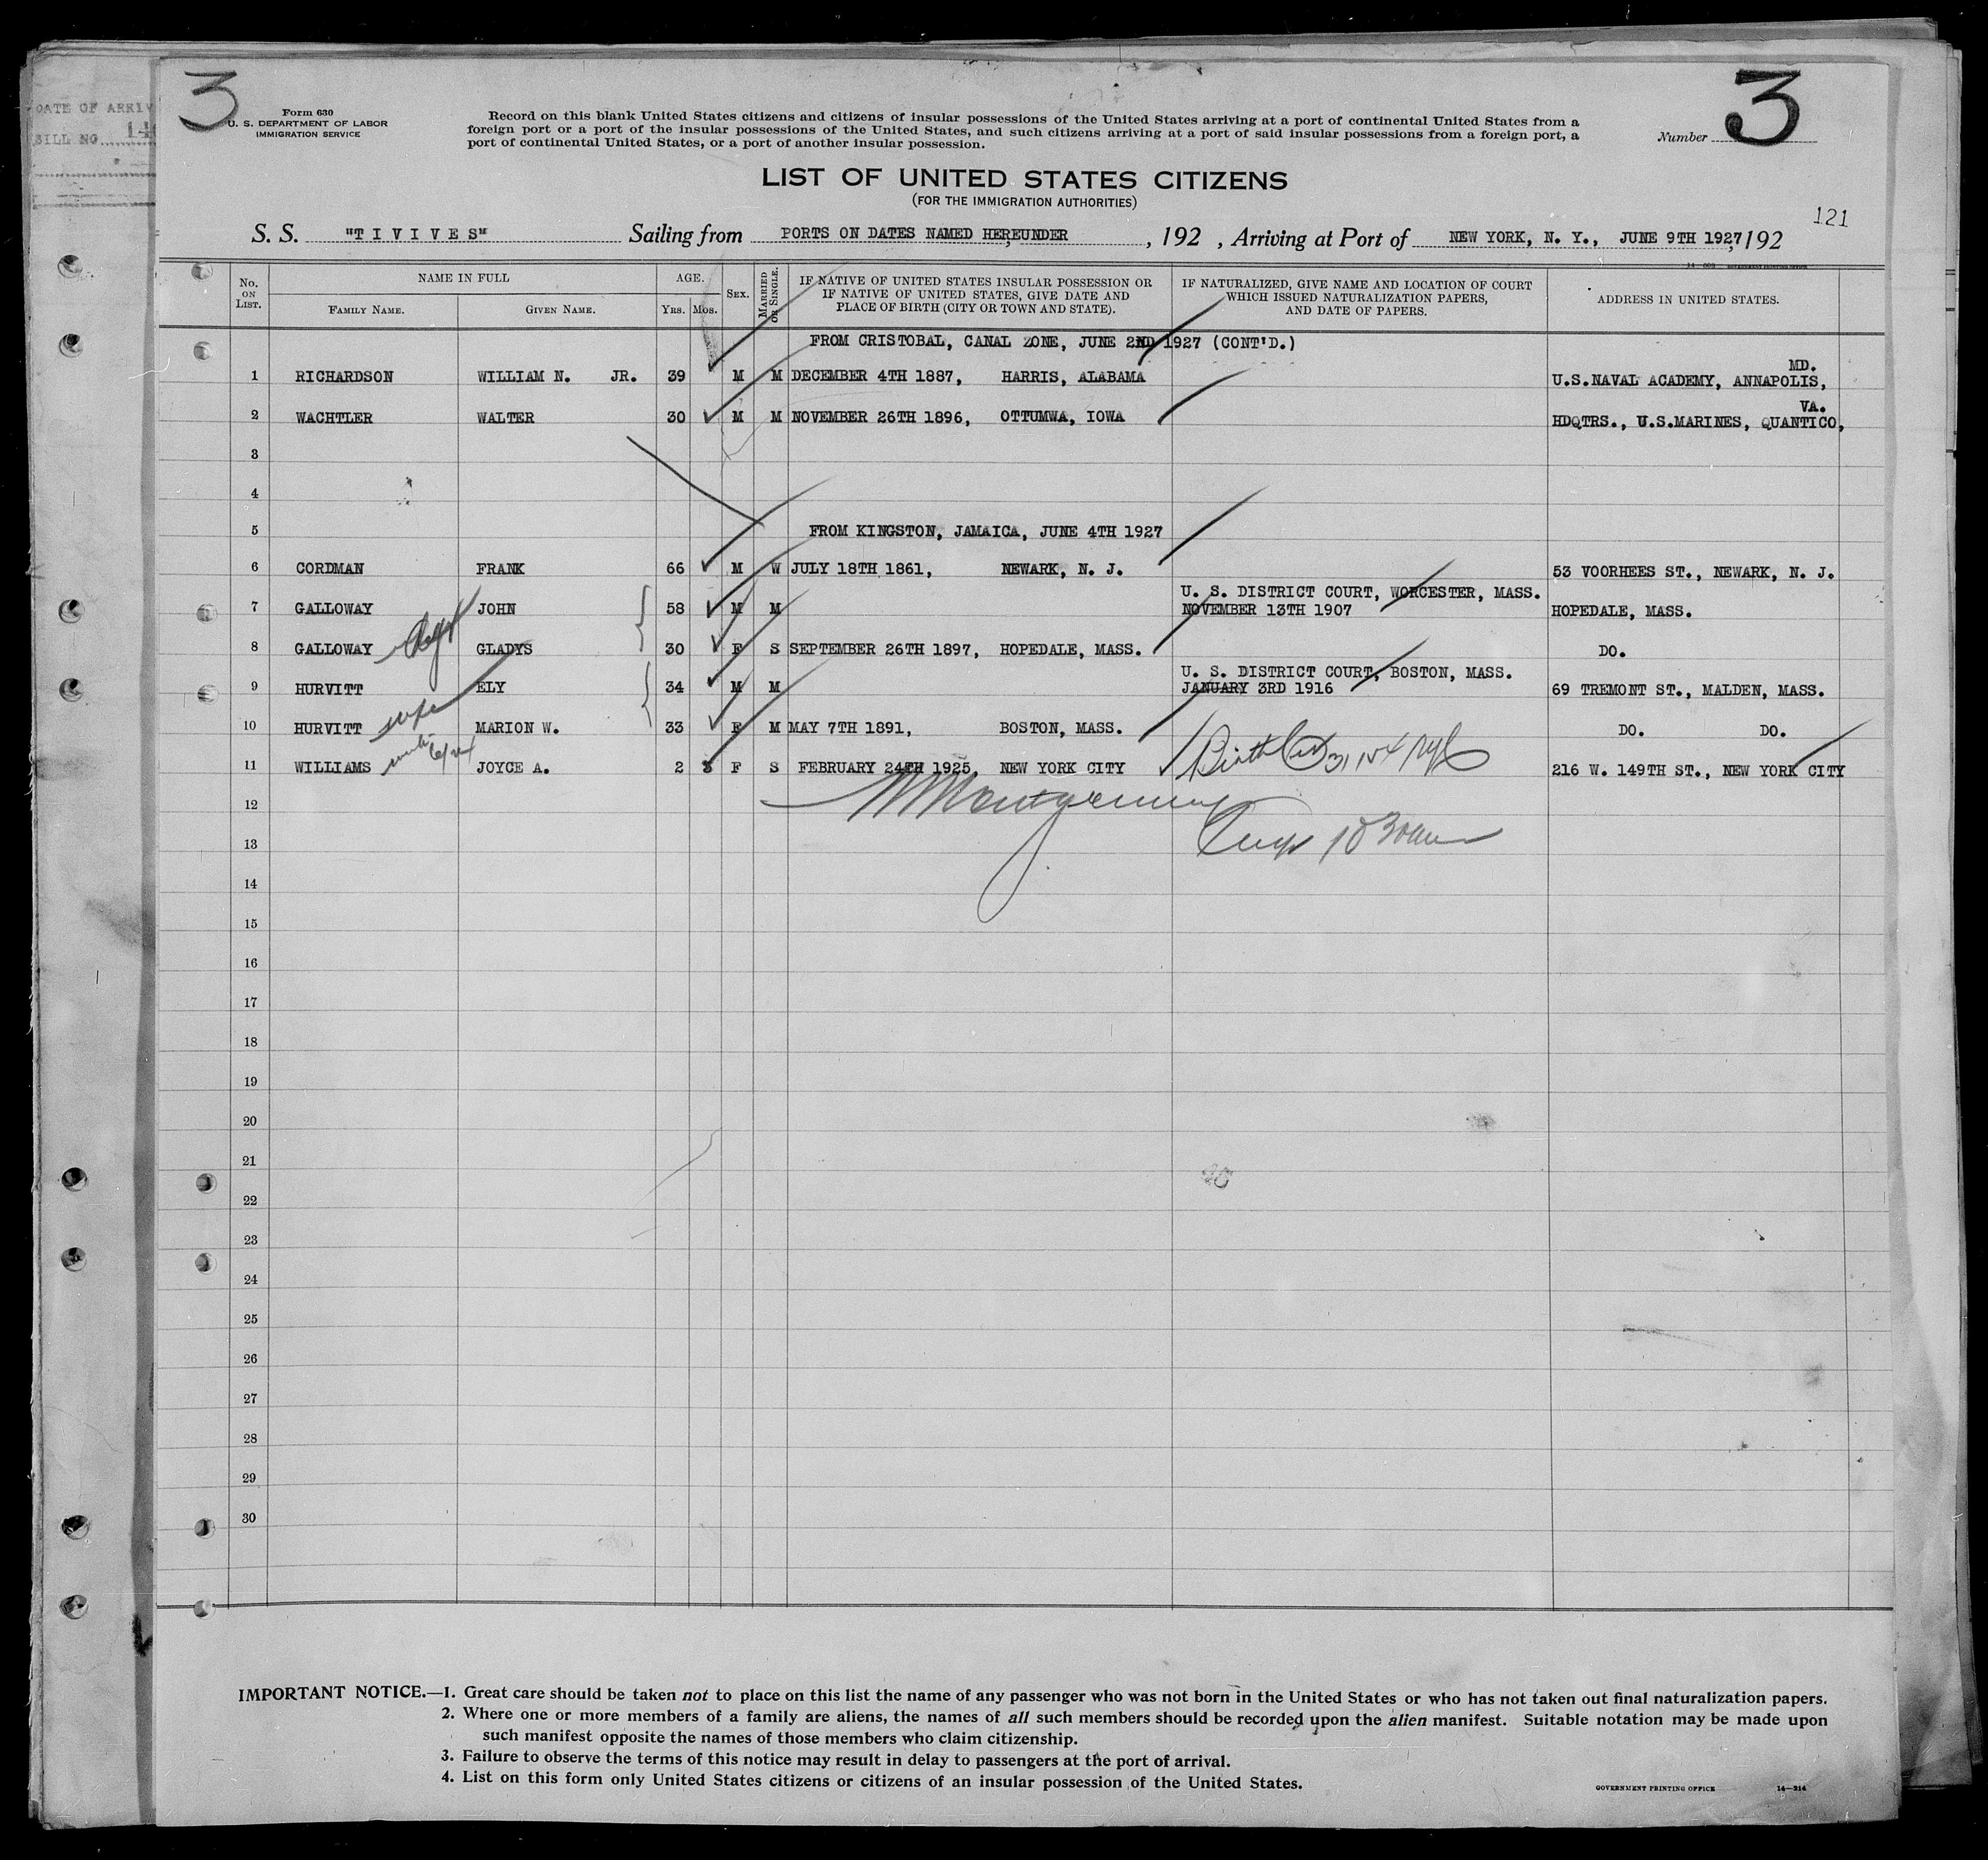 3
3
DATE OF ARRIV
BILL NO. 14
Form 630
U. S. DEPARTMENT OF LABOR
IMMIGRATION SERVICE
Record on this blank United States citizens and citizens of insular possessions of the United States arriving at a port of continental United States from a
foreign port or a port of the insular possessions of the United States, and such citizens arriving at a port of said insular possessions from a foreign port, a
port of continental United States, or a port of another insular possession.
Number
LIST OF UNITED STATES CITIZENS
(FOR THE IMMIGRATION AUTHORITIES)
121
S. S. "TIVIVES" Sailing from PORTS ON DATES NAMED HEREUNDER, 192 , Arriving at Port of NEW YORK, N. Y., JUNE 9TH 1927, 192
No. ON LIST. NAME IN FULL AGE. SEX. MARRIED OR SINGLE. IF NATIVE OF UNITED STATES INSULAR POSSESSION OR IF NATIVE OF UNITED STATES, GIVE DATE AND PLACE OF BIRTH (CITY OR TOWN AND STATE). IF NATURALIZED, GIVE NAME AND LOCATION OF COURT WHICH ISSUED NATURALIZATION PAPERS, AND DATE OF PAPERS. ADDRESS IN UNITED STATES.
FAMILY NAME. GIVEN NAME. YRS. MOS.
FROM CRISTOBAL, CANAL ZONE, JUNE 2ND 1927 (CONT'D.)
1 RICHARDSON WILLIAM N. JR. 39 M M DECEMBER 4TH 1887, HARRIS, ALABAMA U.S.NAVAL ACADEMY, ANNAPOLIS, MD.
2 WACHTLER WALTER 30 M M NOVEMBER 26TH 1896, OTTUMWA, IOWA HDQTRS., U.S.MARINES, QUANTICO, VA.
3
4
5 FROM KINGSTON, JAMAICA, JUNE 4TH 1927
6 CORDMAN FRANK 66 M W JULY 18TH 1861, NEWARK, N. J. 53 VOORHEES ST., NEWARK, N. J.
7 GALLOWAY JOHN 58 M M U. S. DISTRICT COURT, WORCESTER, MASS. NOVEMBER 13TH 1907 HOPEDALE, MASS.
8 GALLOWAY GLADYS 30 F S SEPTEMBER 26TH 1897, HOPEDALE, MASS. DO.
9 HURVITT ELY 34 M M U. S. DISTRICT COURT, BOSTON, MASS. JANUARY 3RD 1916 69 TREMONT ST., MALDEN, MASS.
10 HURVITT wife MARION W. 33 F M MAY 7TH 1891, BOSTON, MASS. DO. DO.
11 WILLIAMS JOYCE A. 2 3 F S FEBRUARY 24TH 1925, NEW YORK CITY Birth 216 W. 149TH ST., NEW YORK CITY
12 Montgomery
13
14
15
16
17
18
19
20
21
22
23
24
25
26
27
28
29
30
IMPORTANT NOTICE.—1. Great care should be taken not to place on this list the name of any passenger who was not born in the United States or who has not taken out final naturalization papers.
2. Where one or more members of a family are aliens, the names of all such members should be recorded upon the alien manifest. Suitable notation may be made upon
such manifest opposite the names of those members who claim citizenship.
3. Failure to observe the terms of this notice may result in delay to passengers at the port of arrival.
4. List on this form only United States citizens or citizens of an insular possession of the United States.
GOVERNMENT PRINTING OFFICE 14—214